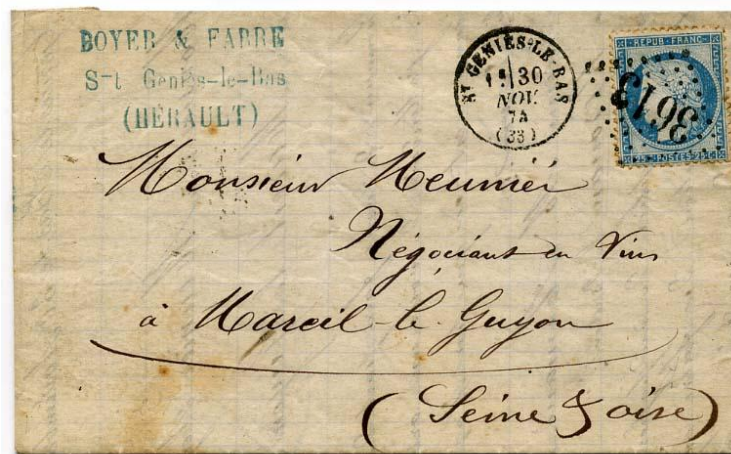 BOYER & FABRE
S-t Geniès-le-Bas
(HÉRAULT)
ST GENIÈS-LE-BAS
1E 30
NOV.
74
(33)
REPUB. FRANC.
3613
25 c POSTES 25 c
Monsieur Meunier
Négociant en Vins
à Mareil-le-Guyon
(Seine & oise)